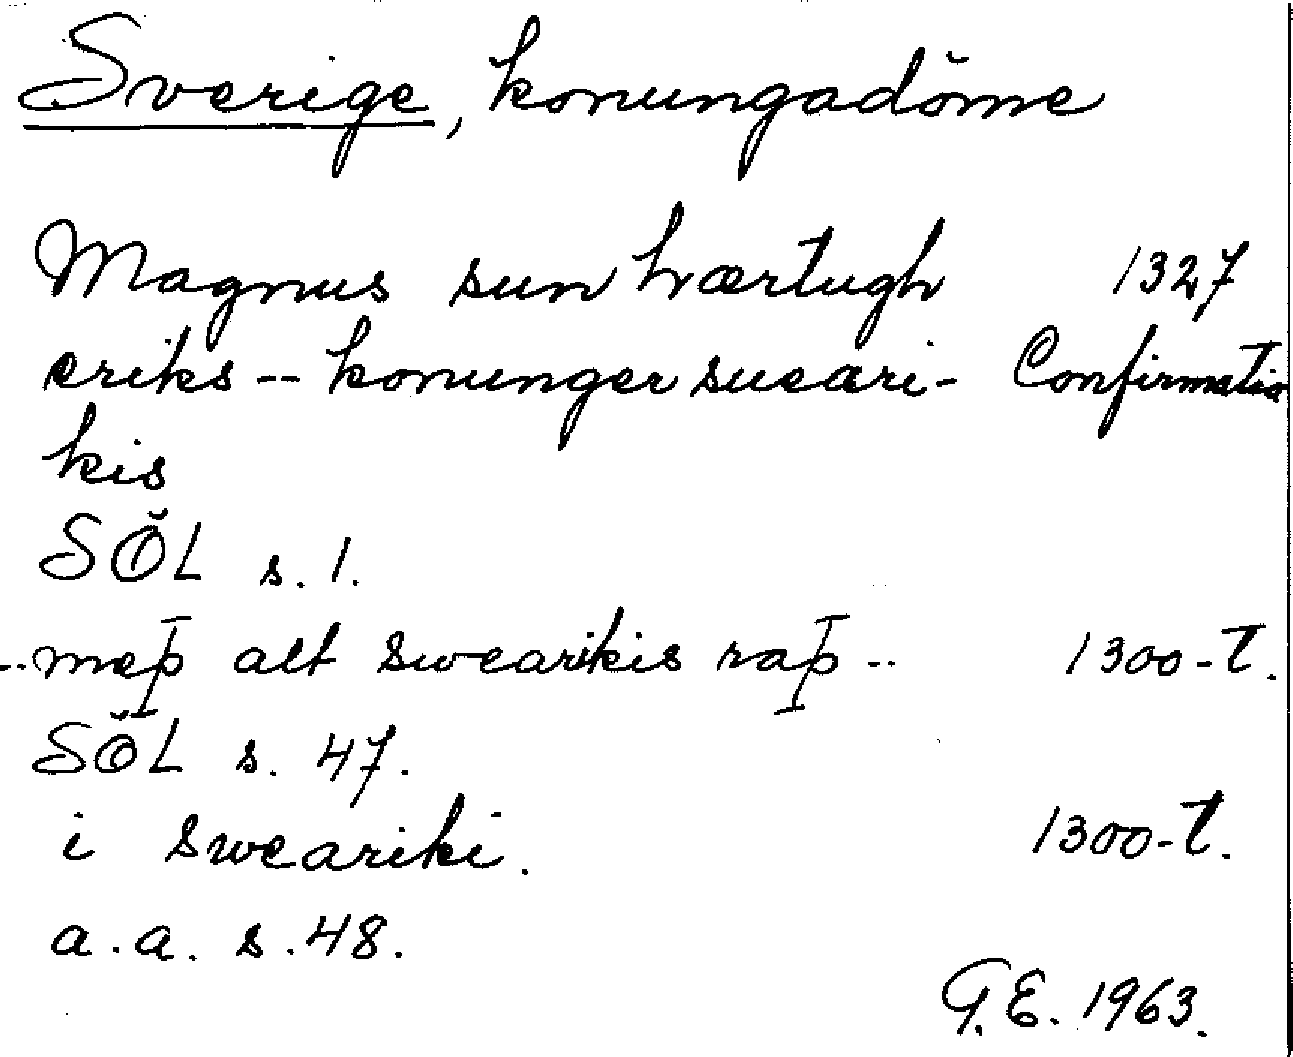 Sverige, konungadöme
Magnus sun hærtugh 1327
eriks -- konunger sueari- Confirmatio
kis
SÖL s. 1.
-- meþ alt swearikis raþ -- 1300-t.
SÖL s. 47.
i sweariki. 1300-t.
a.a. s. 48.
G.E. 1963.